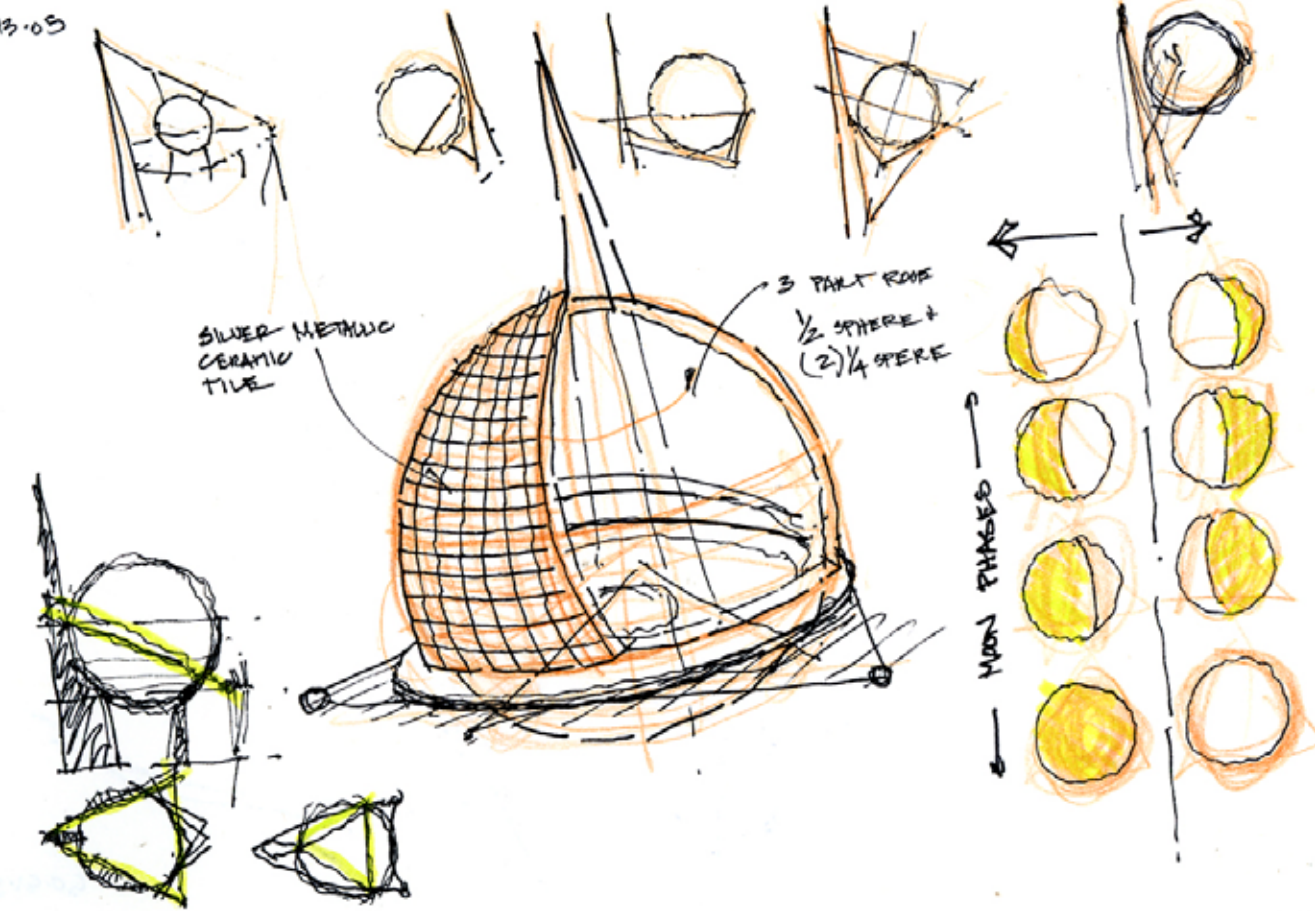 13.05
SILVER METALLIC
CERAMIC
TILE
3 PART ROOF
1/2 SPHERE &
(2) 1/4 SPERE
MOON PHASES